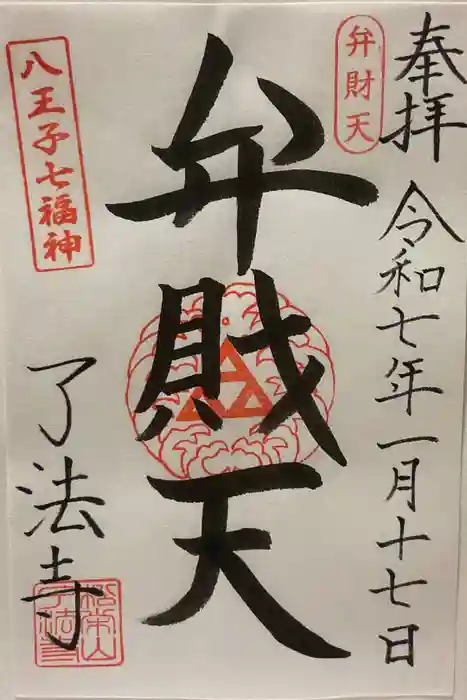 奉拝
令和七年一月十七日
弁財天
弁財天
八王子七福神
了法寺
松栄山
了法寺